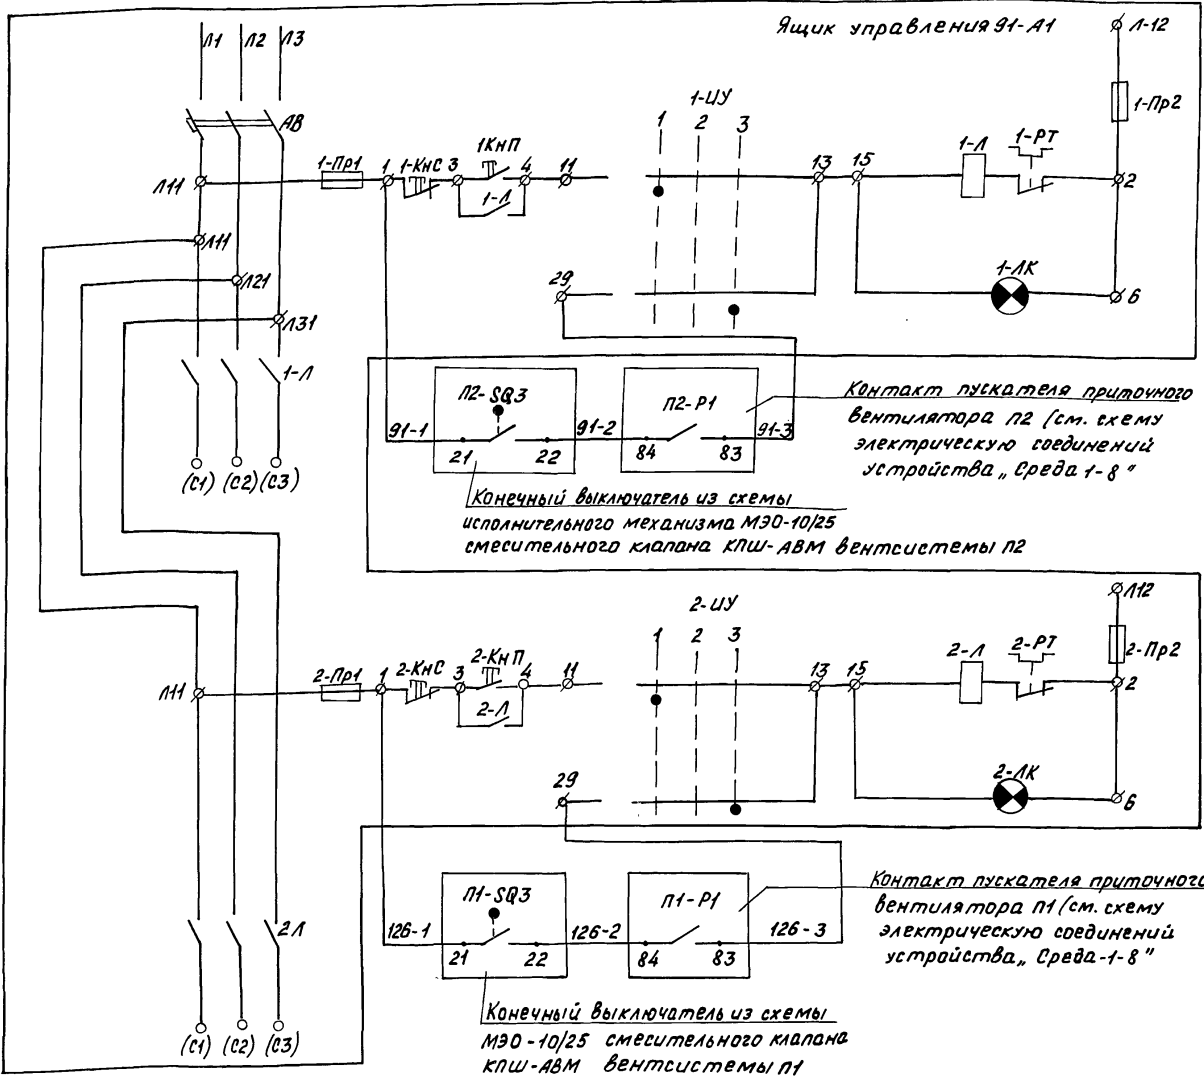 Ящик управления 91-А1
Л1 Л2 Л3
Л-12
1-Пр2
АВ
1-ИУ
1 2 3
Л11
1-Пр1
1
1-КнС
3
1КнП
4
11
1-Л
13
15
1-Л
1-РТ
2
Л11
Л21
Л31
29
1-ЛК
6
1-Л
(С1) (С2) (С3)
П2-SQ3
П2-Р1
91-1
21
22
91-2
84
83
91-3
Контакт пускателя приточного
вентилятора П2 (см. схему
электрическую соединений
устройства „Среда 1-8"
Конечный выключатель из схемы
исполнительного механизма МЭО-10/25
смесительного клапана КПШ-АВМ вентсистемы П2
2-ИУ
1 2 3
Л12
2-Пр2
Л11
2-Пр1
1
2-КнС
3
2-КнП
4
11
2-Л
13
15
2-Л
2-РТ
2
29
2-ЛК
6
2Л
(С1) (С2) (С3)
П1-SQ3
П1-Р1
126-1
21
22
126-2
84
83
126-3
Контакт пускателя приточного
вентилятора П1 (см. схему
электрическую соединений
устройства „Среда-1-8"
Конечный выключатель из схемы
МЭО-10/25 смесительного клапана
КПШ-АВМ вентсистемы П1